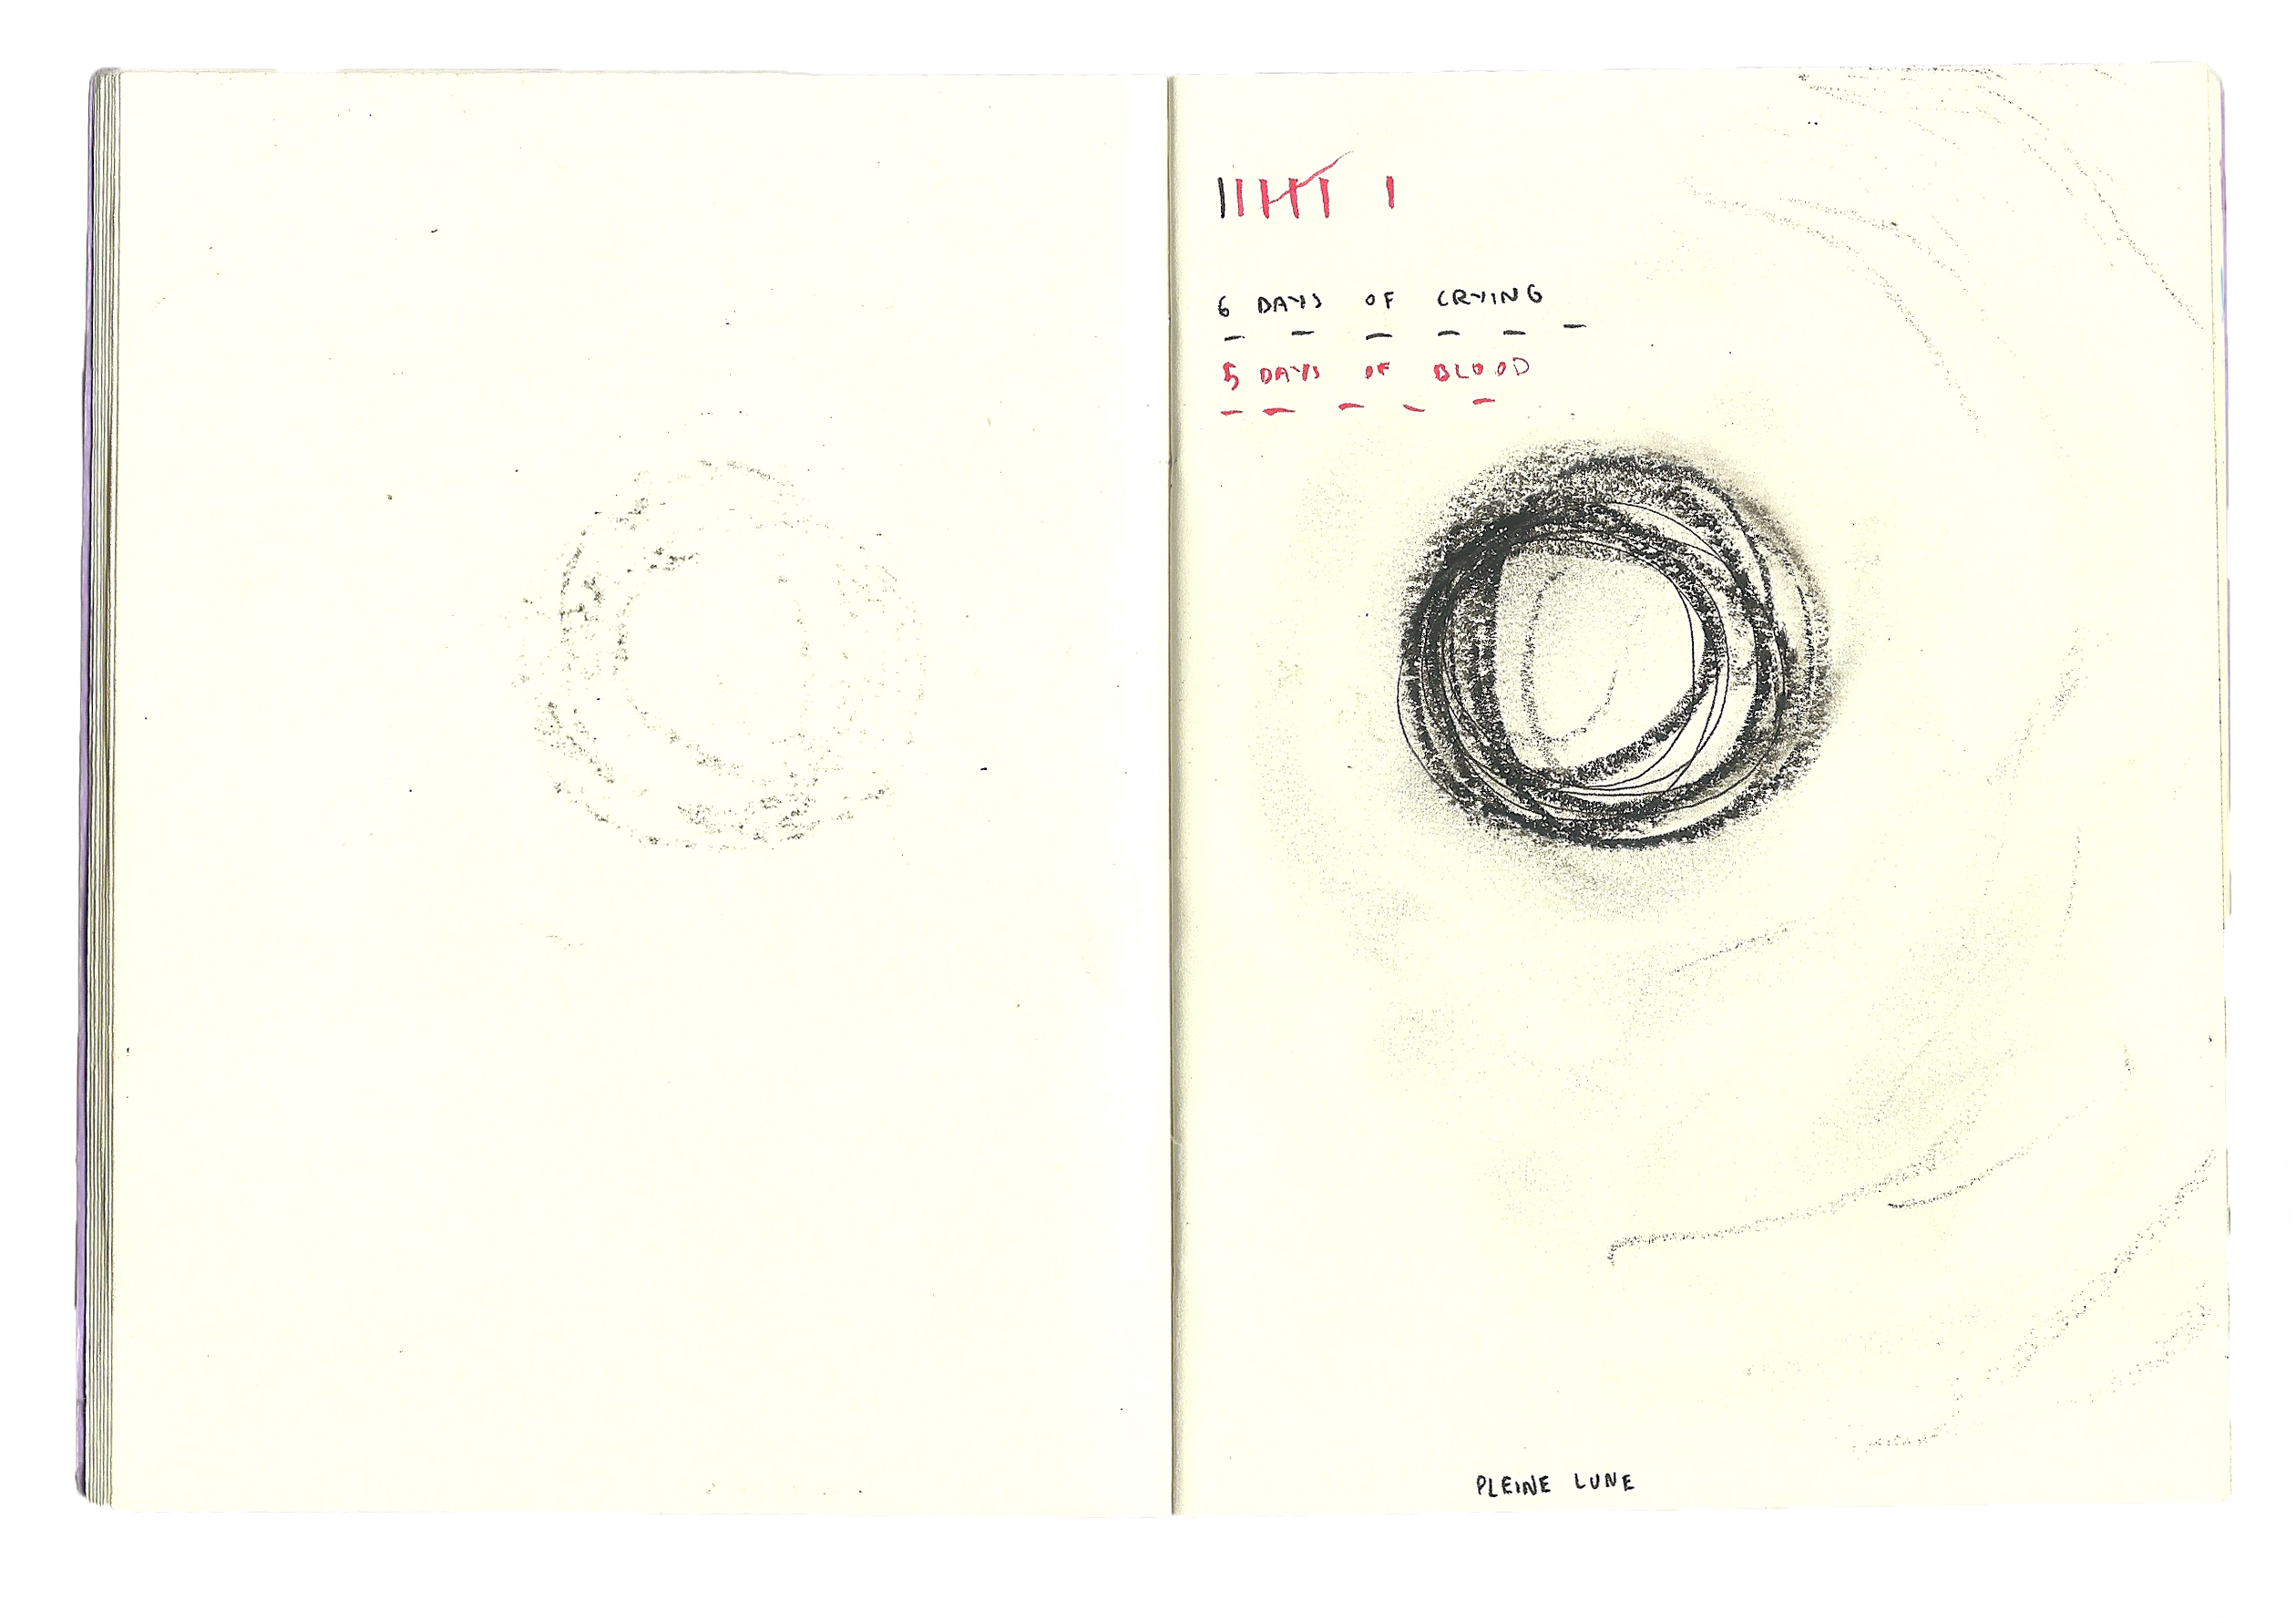 6 DAYS OF CRYING
5 DAYS OF BLOOD
PLEINE LUNE